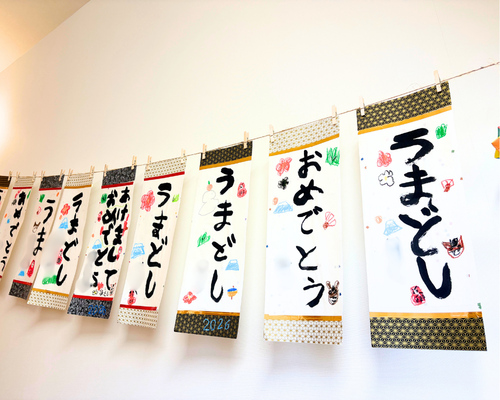 うまどし
おめでとう
うまどし
2026
うまどし
あけまして
おめでとう
うまどし
うま
おめでとう